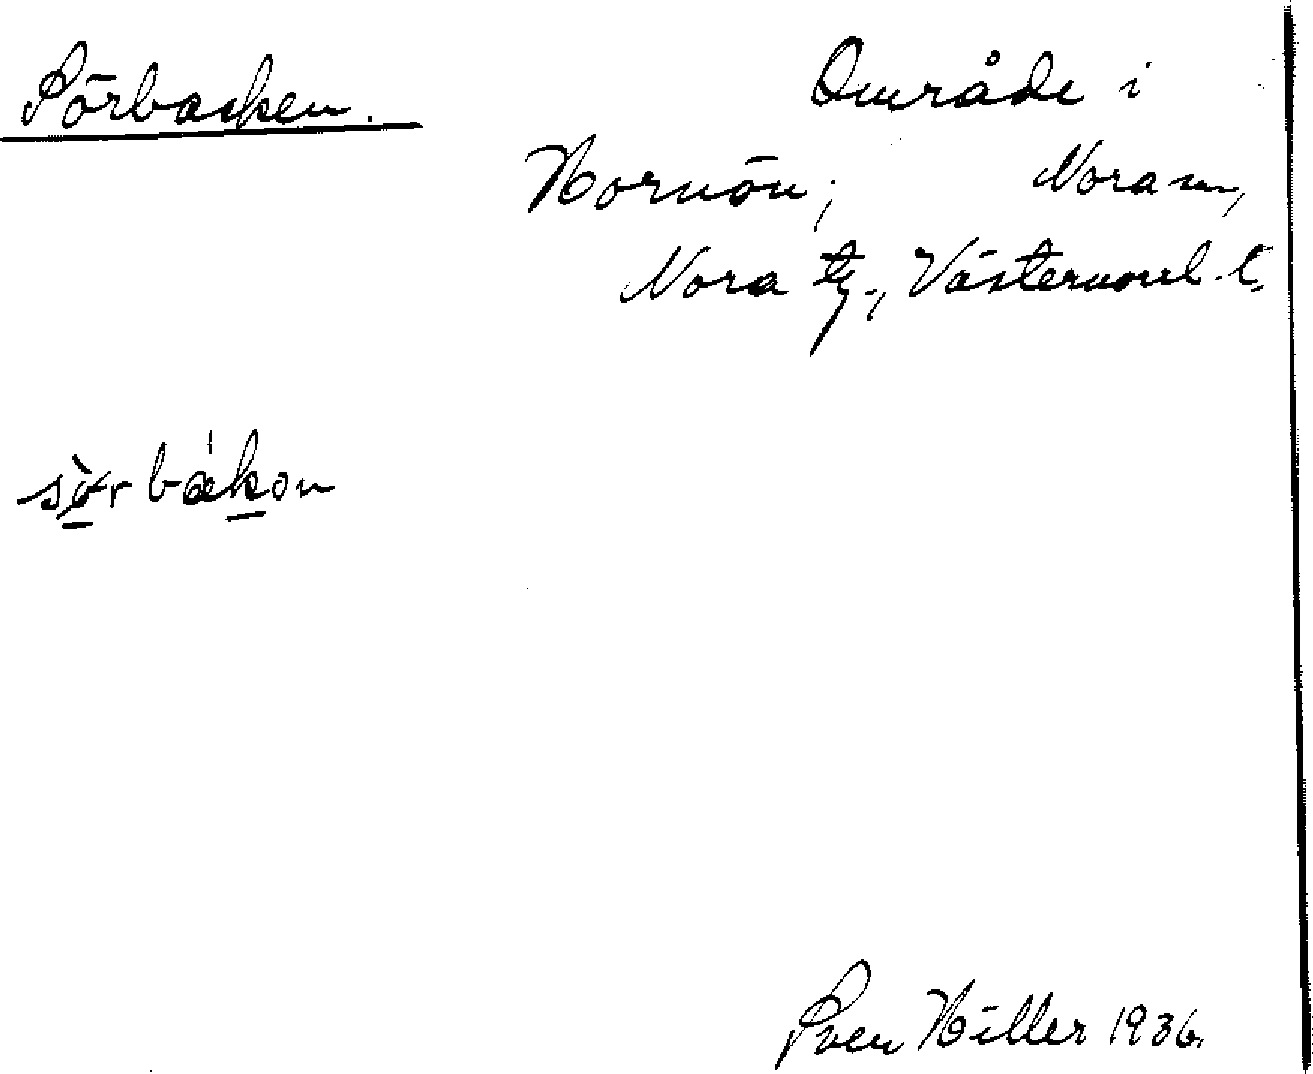 Sörbacken.
Område i
Hornön, Nora sn,
Nora tg., Västernorrl. l.
sörbakon
Sven Hiller 1936.